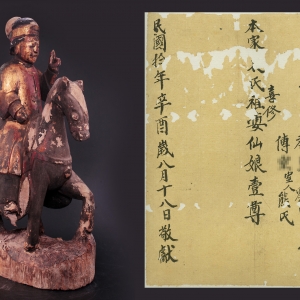 傅 室人熊氏
喜修
本家八氏祖婆仙娘壹尊
民國拾年辛酉歲八月十八日敬獻